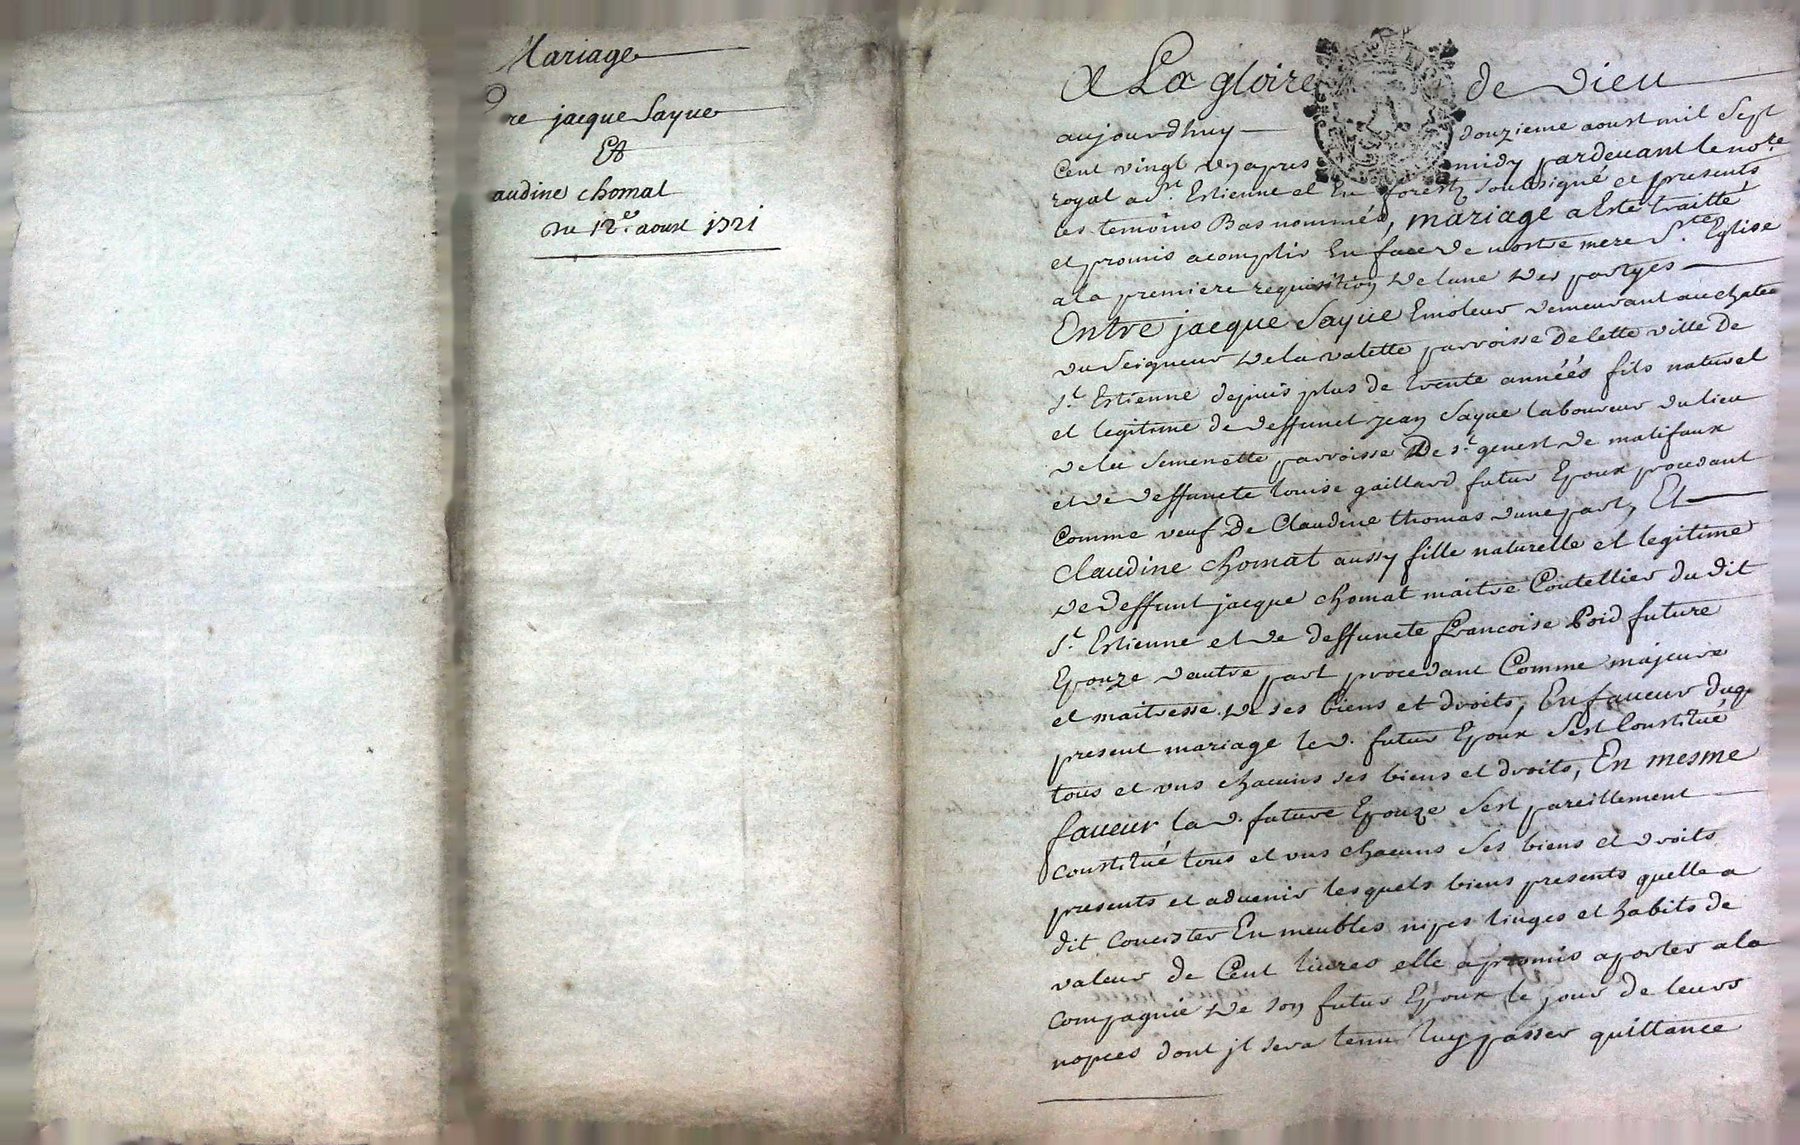 Mariage
re jacque Sayue
Et
audine chomat
du 12e. aoust 1721
A La gloire de Dieu
aujourdhuy douzieme aoust mil Sept
Cent vingt un apres midy pardevant le note
royal a St. Estienne et En forestz Soubsigné et presents
les temoins Bas nommés, mariage a Esté traitté
et promis acomplir En face de nostre mere Ste. Eglise
a la premiere requisition de lune des partyes
Entre jacque Sayue Emoleur demeurant au chatea
du Seigneur de la valette parroisse de cette ville de
St. Estienne depuis plus de trente années fils naturel
et legitime de deffunct jean Sayue laboureur du lieu
de la Semenette parroisse De St. genest de malifaux
et de deffuncte louise gaillard futur Epoux procedant
Comme veuf de Claudine thomas dune part, Et
Claudine chomat aussy fille naturelle et legitime
de deffunt jacque chomat maitre Coutellier du dit
St. Estienne et de deffuncte francoise Poid future
Epouze dautre part procedant Comme majeure
et maitresse de ses biens et droits, En faueur duq
present mariage le d. futur Epoux Sest Constitué
tous et vns chacuns ses biens et droits, En mesme
faueur la d. future Epouze Sest pareillement
Constitué tous et vns chacuns Ses biens et droits
presents et aduenir lesquels biens presents quelle a
dit Concister En meubles nipes linges et habits de
valeur de Cent liures elle a promis aporter a la
Compagnie de son futur Epoux le jour de leurs
nopces dont jl sera tenu luy passer quittance